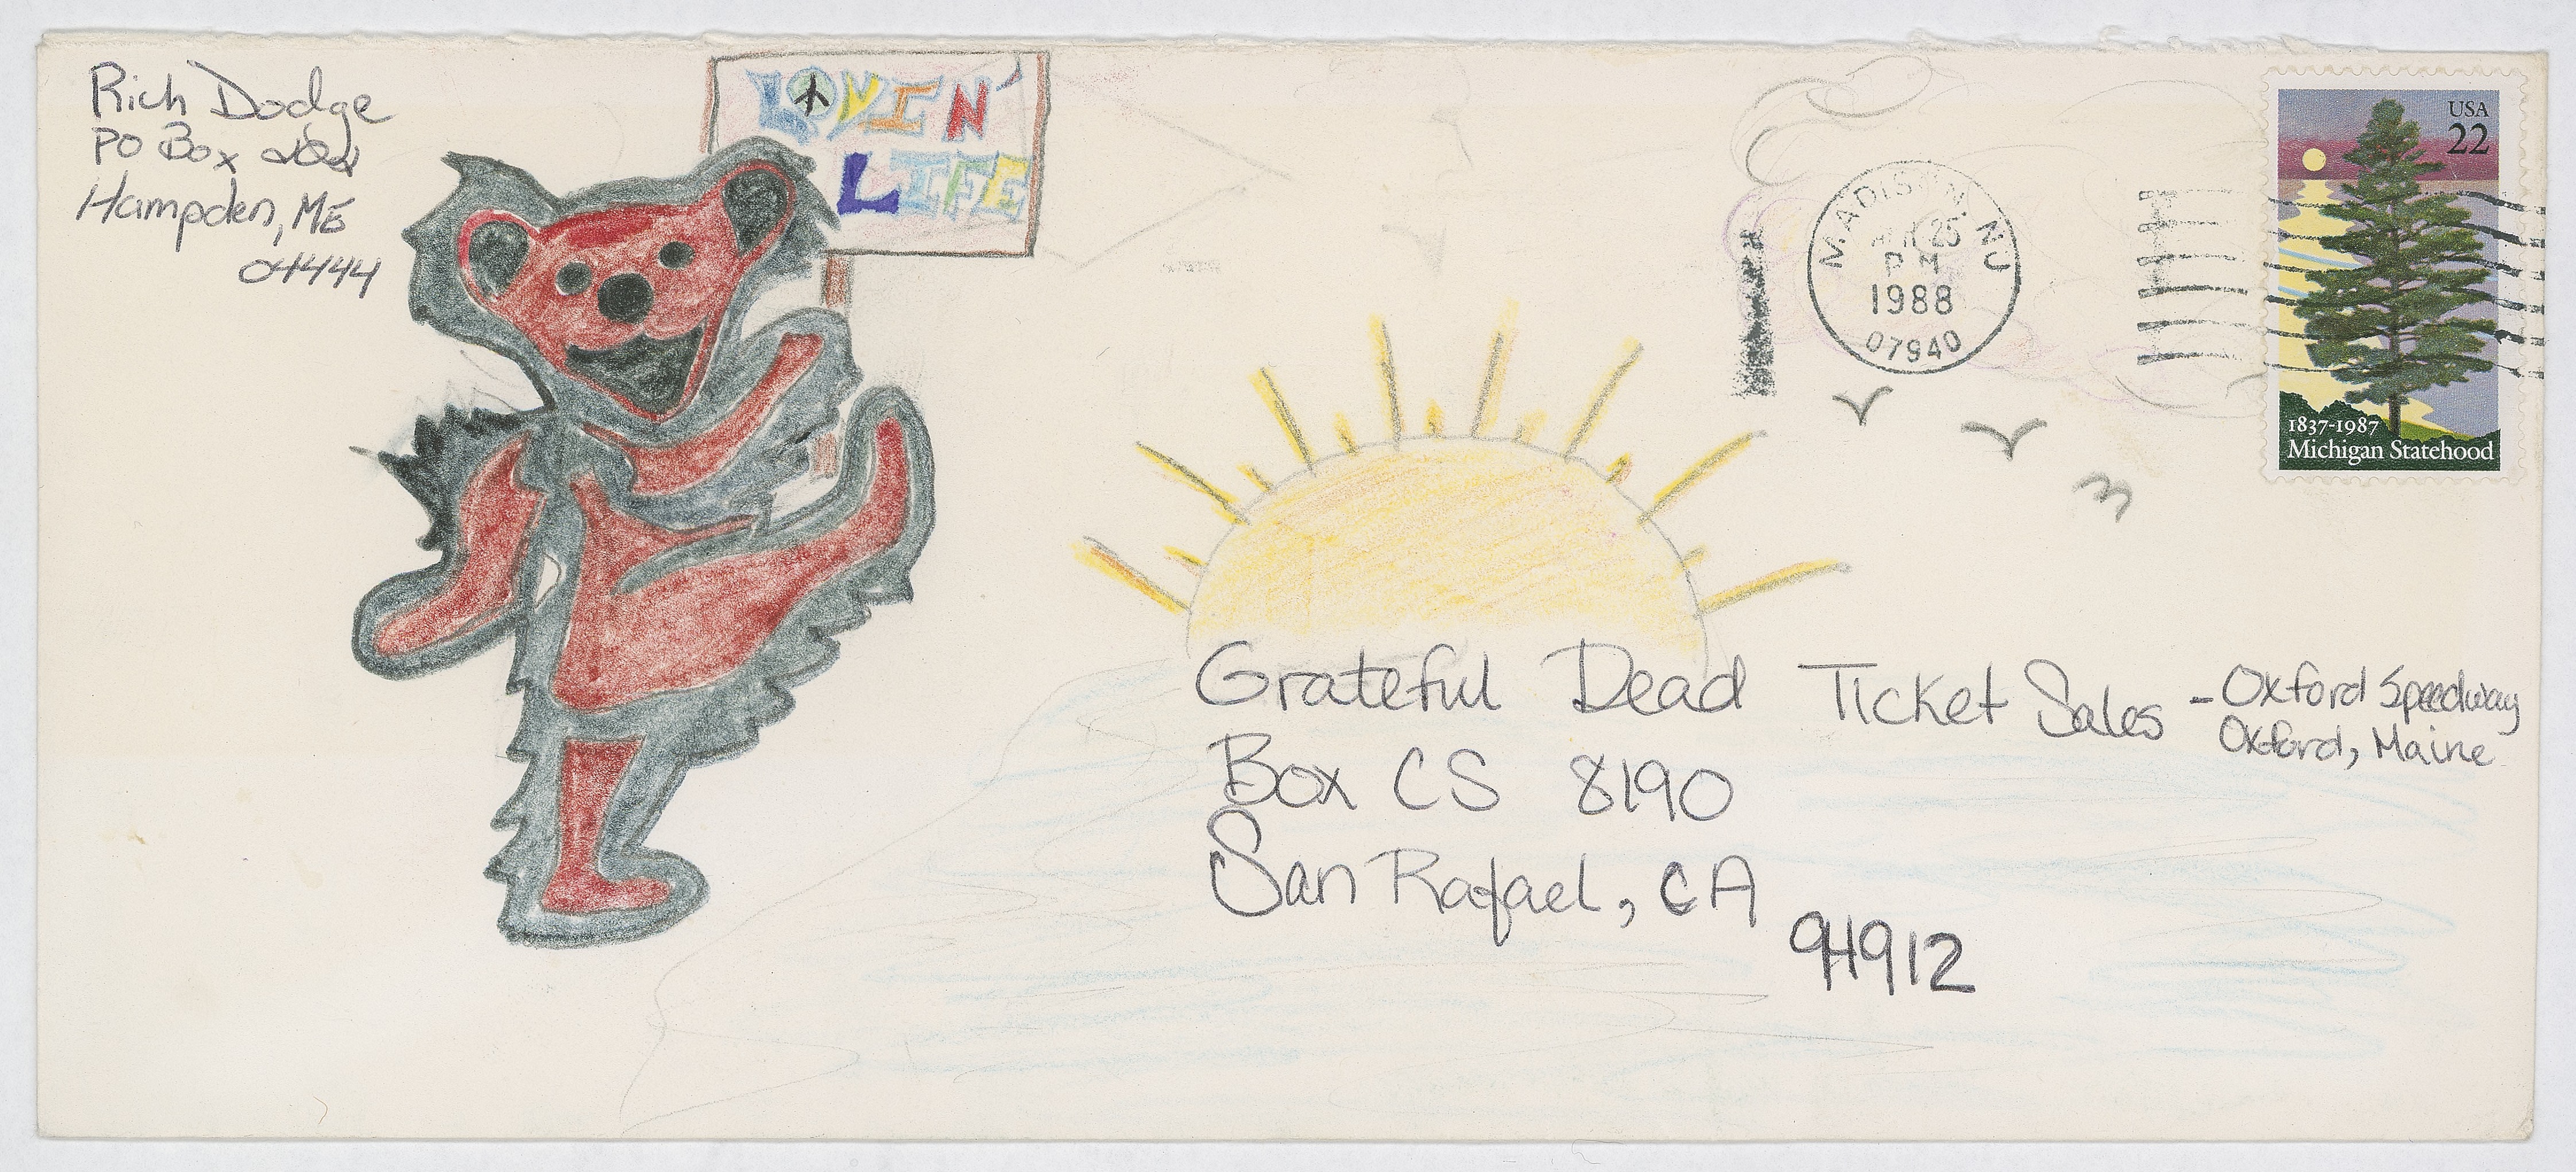 Rich Dodge
PO Box
Hampden, ME
04444
LOVIN'
LIFE
MADISON, NJ
25
PM
1988
07940
USA
22
1837-1987
Michigan Statehood
Grateful Dead Ticket Sales - Oxford Speedway
Oxford, Maine
Box CS 8190
San Rafael, CA
94912